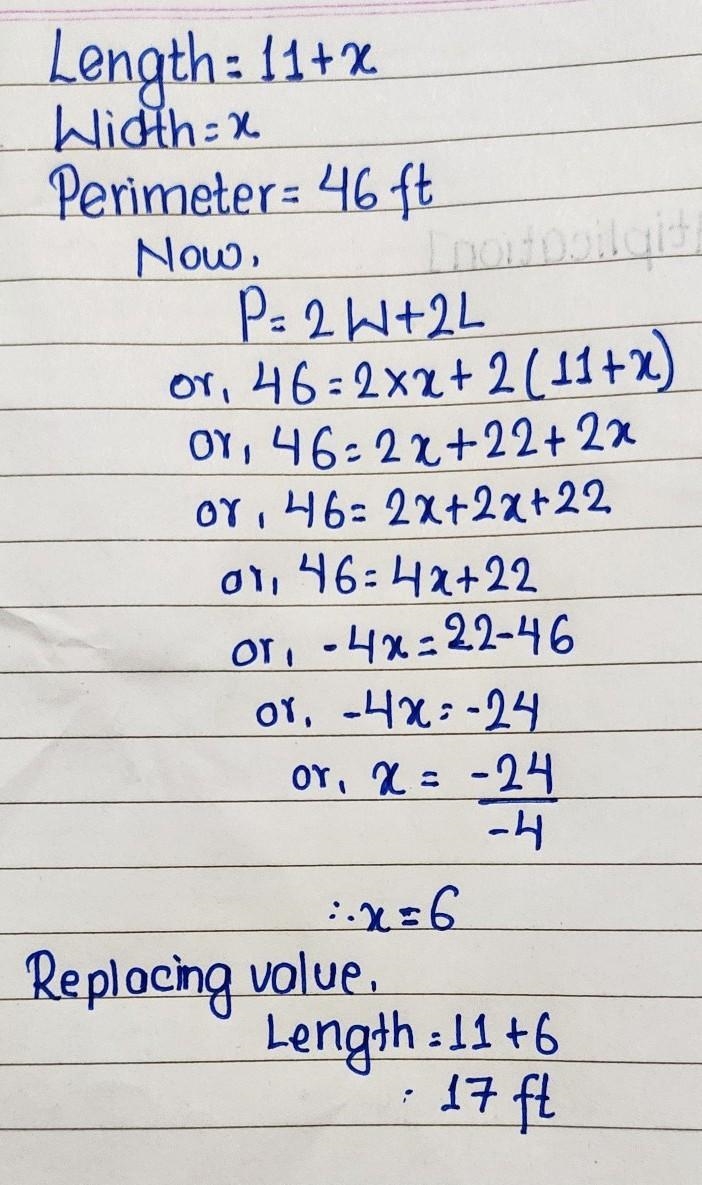 Length = 11+x
Width = x
Perimeter = 46 ft
Now,
P = 2W+2L
or, 46 = 2×x + 2(11+x)
or, 46 = 2x+22+2x
or, 46 = 2x+2x+22
or, 46 = 4x+22
or, -4x = 22-46
or, -4x = -24
or, x = -24
-4
∴ x = 6
Replacing value,
Length = 11+6
: 17 ft